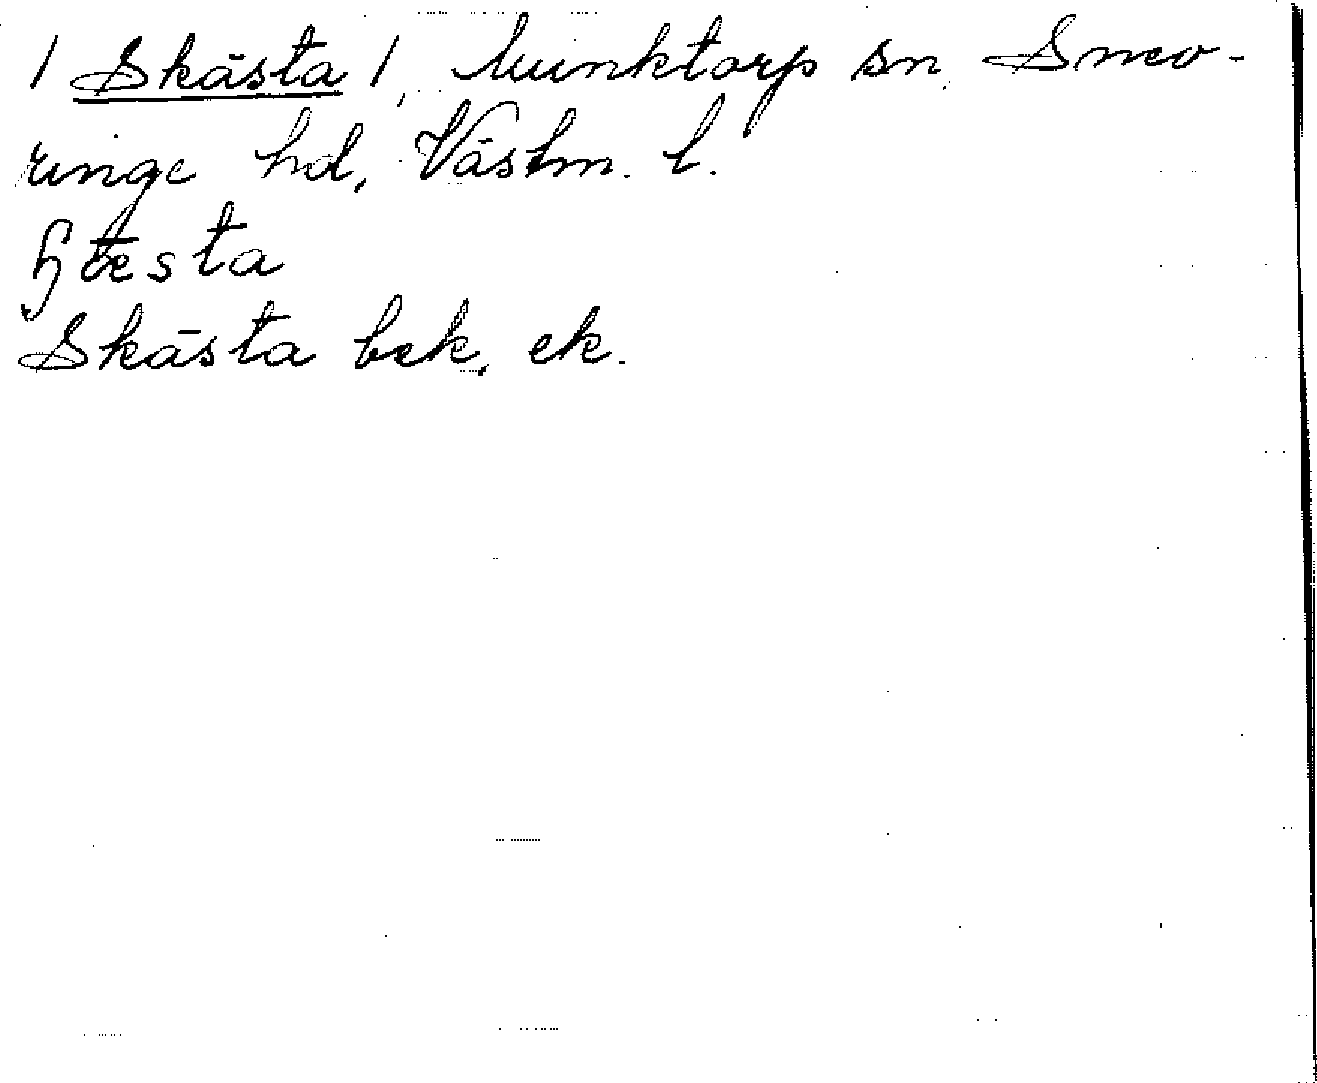 / Skästa /, Munktorp sn, Snev-
ringe hd, Västm. l.
Skästa bek. ek.